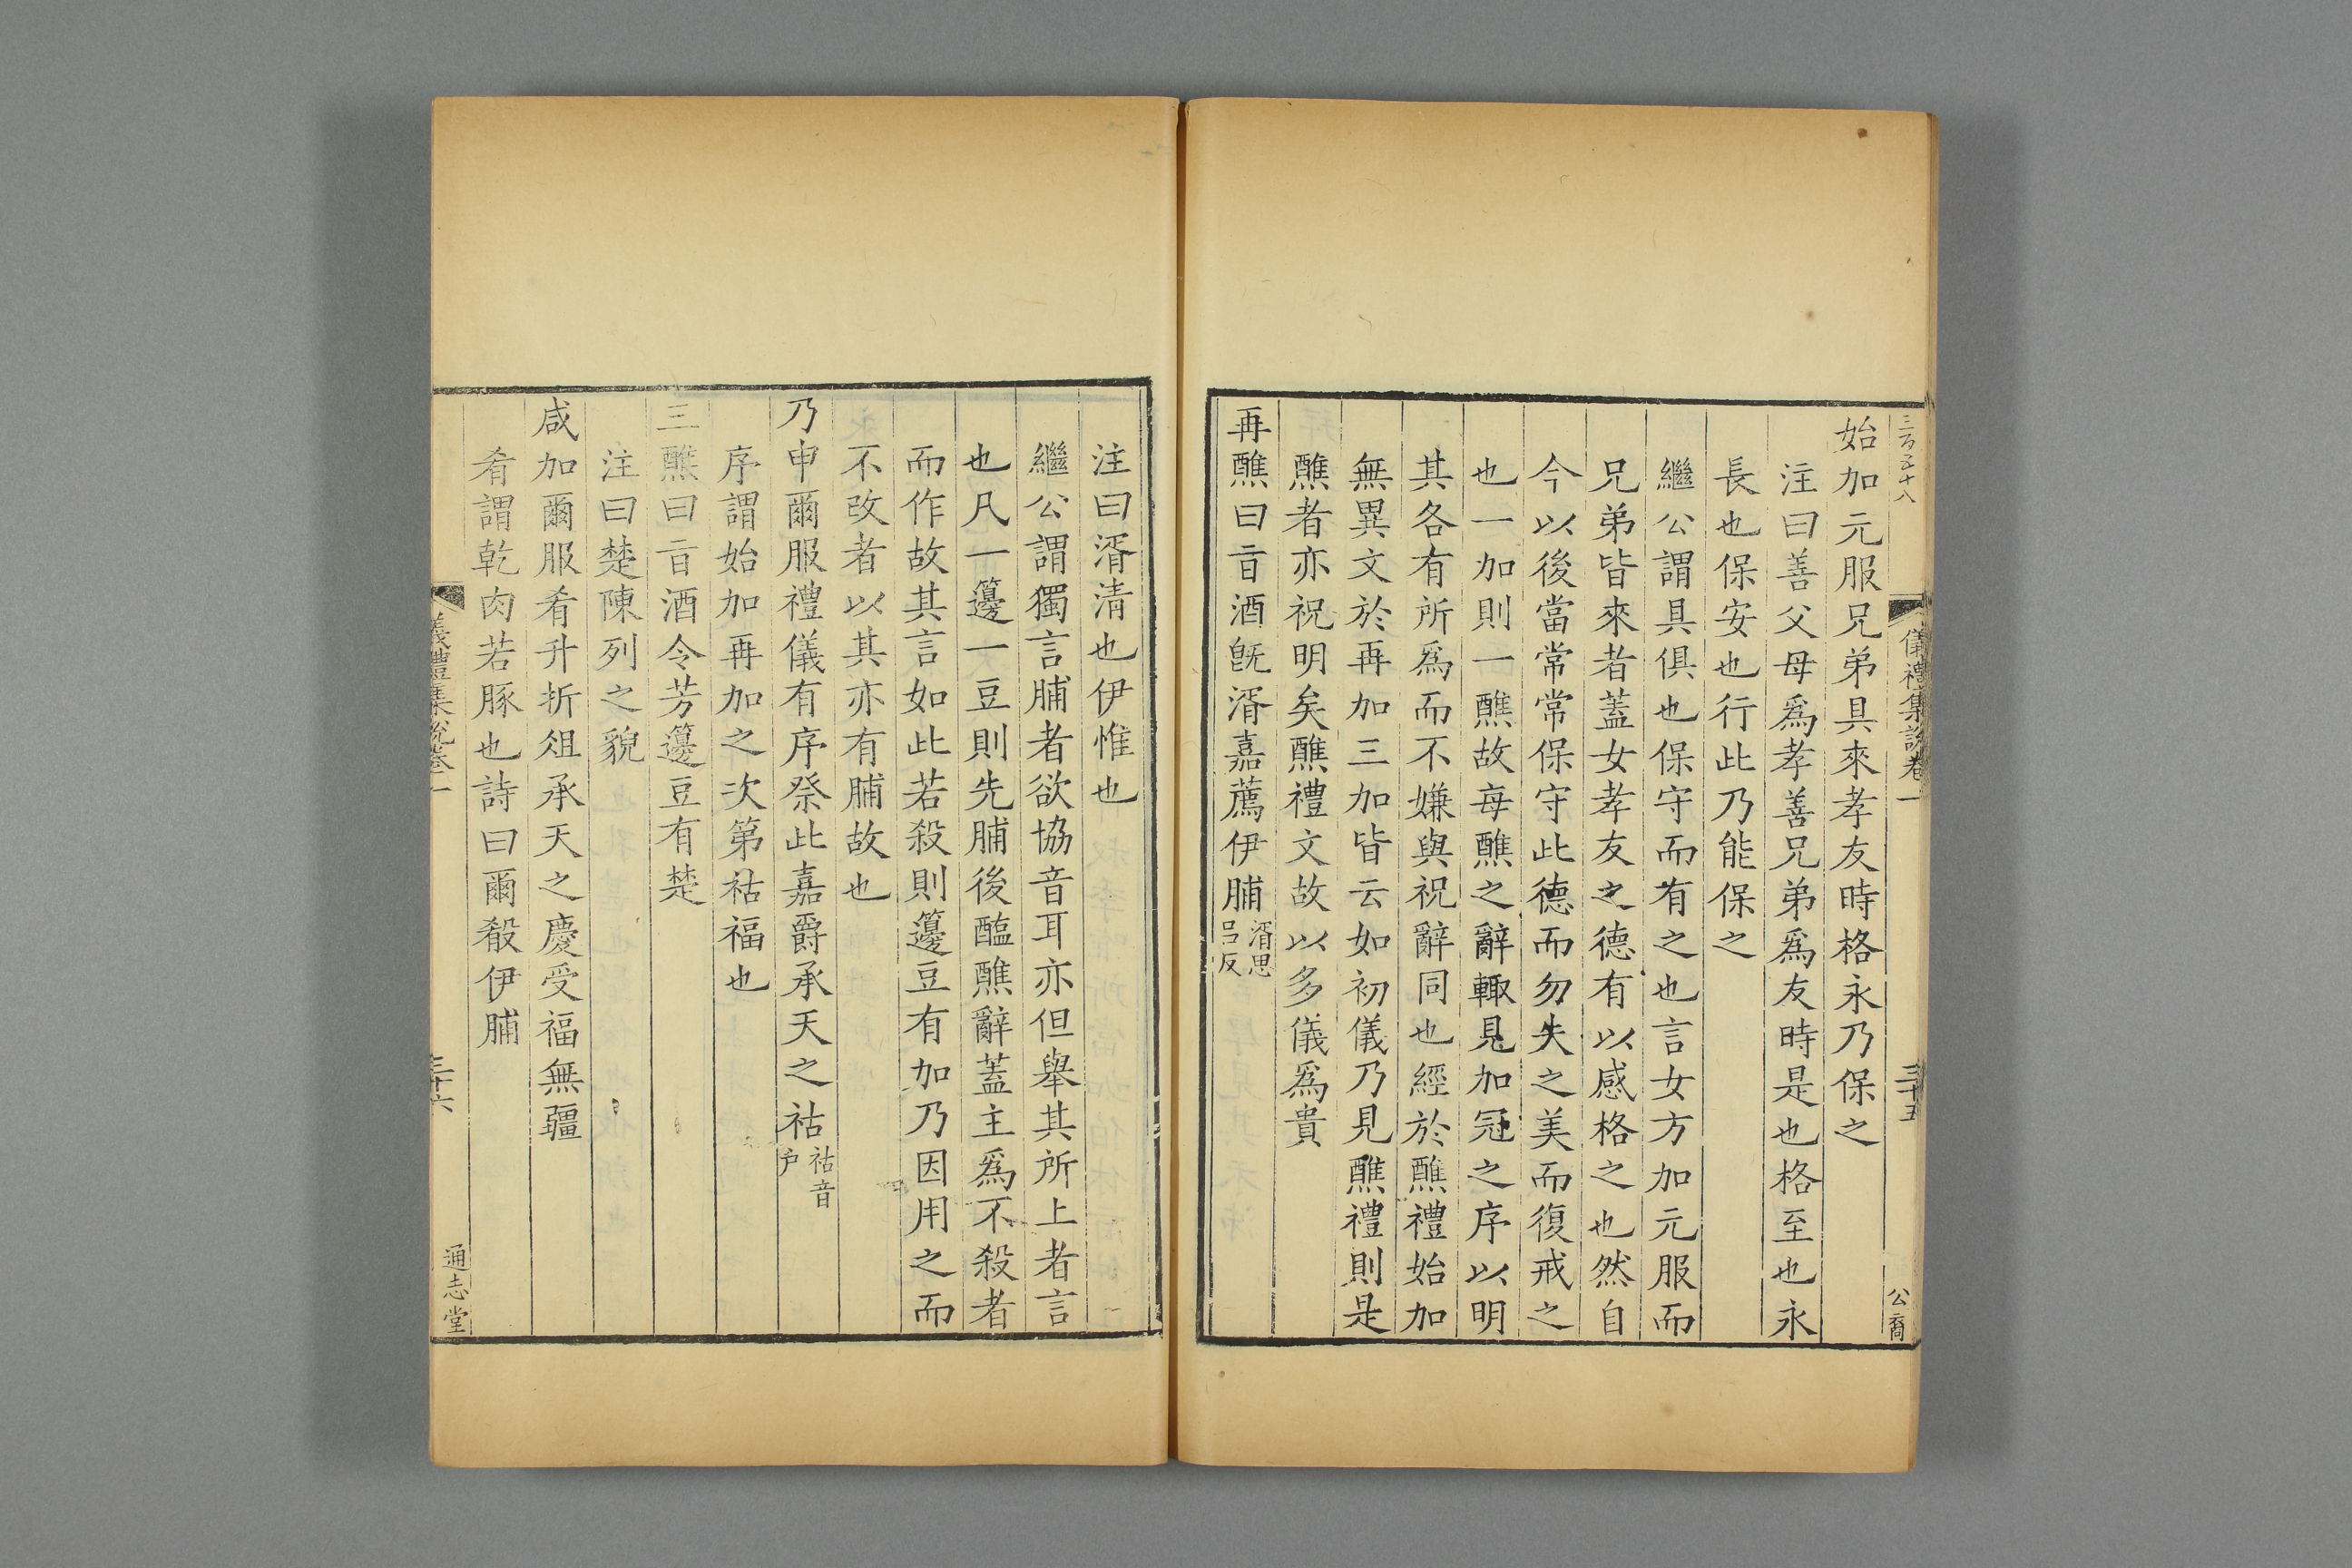 三百五十八
儀禮集說卷一
三十五
公裔
始加元服兄弟具來孝友時格永乃保之
注曰善父母爲孝善兄弟爲友時是也格至也永
長也保安也行此乃能保之
繼公謂具俱也保守而有之也言女方加元服而
兄弟皆來者蓋女孝友之德有以感格之也然自
今以後當常常保守此德而勿失之美而復戒之
也一加則一醮故每醮之辭輙見加冠之序以明
其各有所爲而不嫌與祝辭同也經於醮禮始加
無異文於再加三加皆云如初儀乃見醮禮則是
醮者亦祝明矣醮禮文故以多儀爲貴
再醮曰旨酒旣湑嘉薦伊脯湑思呂反
注曰湑清也伊惟也
繼公謂獨言脯者欲協音耳亦但舉其所上者言
也凡一籩一豆則先脯後醢醮辭蓋主爲不殺者
而作故其言如此若殺則籩豆有加乃因用之而
不改者以其亦有脯故也
乃申爾服禮儀有序祭此嘉爵承天之祜祜音戶
序謂始加再加之次第祜福也
三醮曰旨酒令芳籩豆有楚
注曰楚陳列之貌
咸加爾服肴升折俎承天之慶受福無疆
肴謂乾肉若豚也詩曰爾殽伊脯
儀禮集說卷一
三十六
通志堂